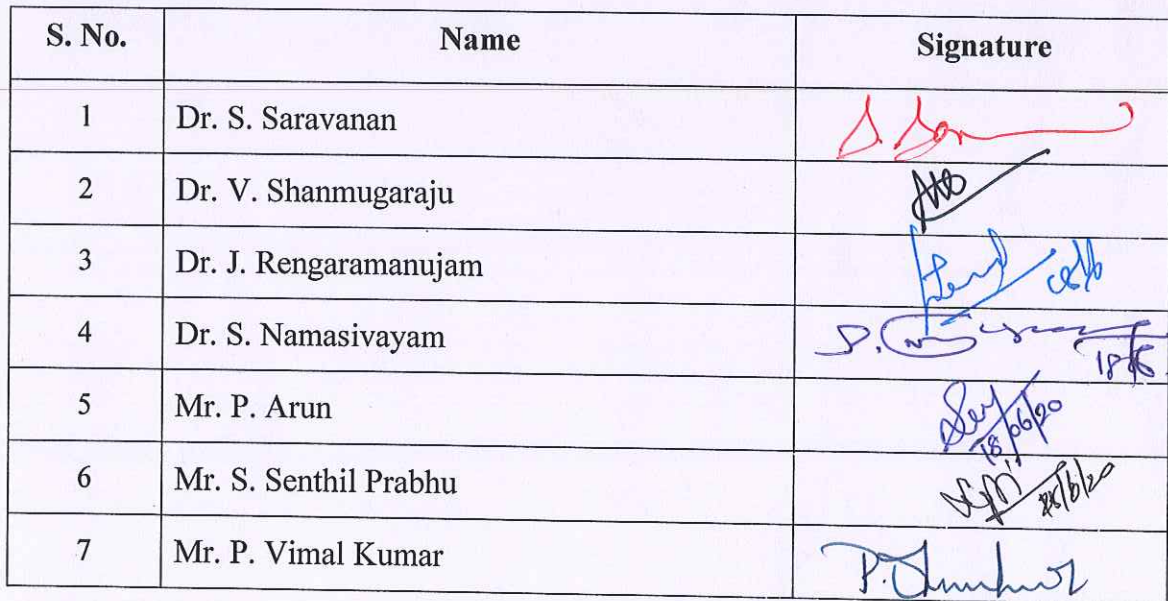 S. No. Name Signature
1 Dr. S. Saravanan
2 Dr. V. Shanmugaraju
3 Dr. J. Rengaramanujam
4 Dr. S. Namasivayam 18/6
5 Mr. P. Arun 18/06/20
6 Mr. S. Senthil Prabhu
7 Mr. P. Vimal Kumar